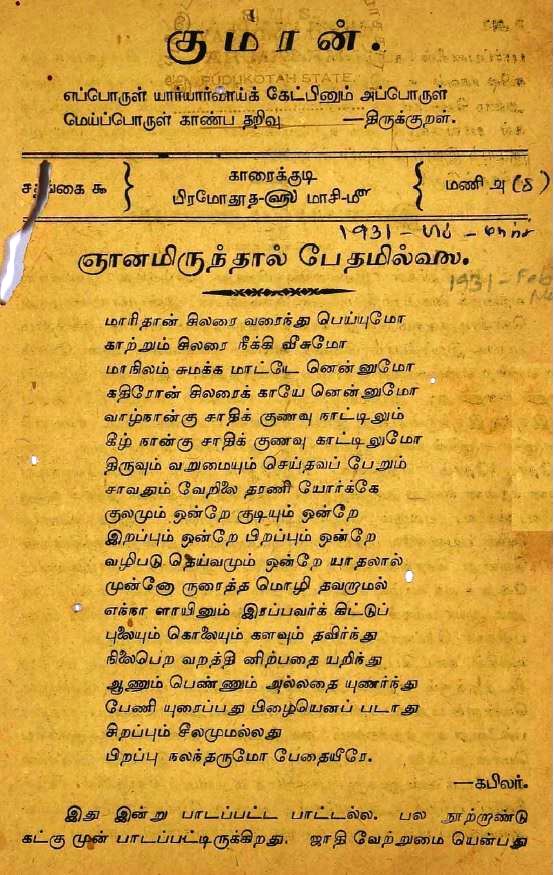 குமரன்.
PUDUKOTAH STATE.
எப்பொருள் யார்யார்வாய்க் கேட்பினும் அப்பொருள்
மெய்ப்பொருள் காண்ப தறிவு —திருக்குறள்.
காரைக்குடி
பிரமோதூத-௵ மாசி-௴
மணி அ (8)
1931
ஞானமிருந்தால் பேதமில்லை.
1931-Feb
மாரிதான் சிலரை வரைந்து பெய்யுமோ
காற்றும் சிலரை நீக்கி வீசுமோ
மாநிலம் சுமக்க மாட்டே னென்னுமோ
கதிரோன் சிலரைக் காயே னென்னுமோ
வாழ்நான்கு சாதிக் குணவு நாட்டிலும்
கீழ் நான்கு சாதிக் குணவு காட்டிலுமோ
திருவும் வறுமையும் செய்தவப் பேறும்
சாவதும் வேறிலை தரணி யோர்க்கே
குலமும் ஒன்றே குடியும் ஒன்றே
இறப்பும் ஒன்றே பிறப்பும் ஒன்றே
வழிபடு தெய்வமும் ஒன்றே யாதலால்
முன்னோ ருரைத்த மொழி தவறாமல்
எந்நா ளாயினும் இரப்பவர்க் கிட்டுப்
புலையும் கொலையும் களவும் தவிர்ந்து
நிலைபெற வறத்தி னிற்பதை யறிந்து
ஆணும் பெண்ணும் அல்லதை யுணர்ந்து
பேணி யுரைப்பது பிழையெனப் படாது
சிறப்பும் சீலமுமல்லது
பிறப்பு நலந்தருமோ பேதையீரே.
—கபிலர்.
இது இன்று பாடப்பட்ட பாட்டல்ல. பல நூற்றாண்டு
கட்கு முன் பாடப்பட்டிருக்கிறது. ஜாதி வேற்றுமை யென்பது